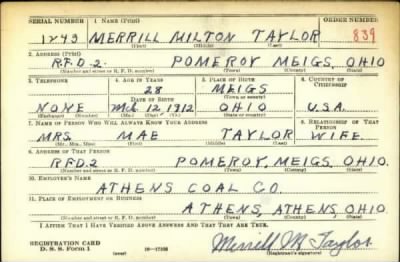 SERIAL NUMBER 1. NAME (Print) ORDER NUMBER
1243 MERRILL MILTON TAYLOR 839
(First) (Middle) (Last)
2. ADDRESS (Print)
R.F.D. 2. POMEROY MEIGS, OHIO
(Number and street or R. F. D. number) (Town) (County) (State)
3. TELEPHONE 4. AGE IN YEARS 5. PLACE OF BIRTH 6. COUNTRY OF CITIZENSHIP
28 MEIGS
DATE OF BIRTH (Town or county)
NONE Mch. 12, 1912 OHIO U.S.A.
(Exchange) (Number) (Mo.) (Day) (Yr.) (State or country)
7. NAME OF PERSON WHO WILL ALWAYS KNOW YOUR ADDRESS 8. RELATIONSHIP OF THAT PERSON
MRS. MAE TAYLOR WIFE
(Mr., Mrs., Miss) (First) (Middle) (Last)
9. ADDRESS OF THAT PERSON
RFD. 2 POMEROY, MEIGS, OHIO.
(Number and street or R. F. D. number) (Town) (County) (State)
10. EMPLOYER'S NAME
ATHENS COAL CO.
11. PLACE OF EMPLOYMENT OR BUSINESS
ATHENS, ATHENS, OHIO.
(Number and street or R. F. D. number) (Town) (County) (State)
I AFFIRM THAT I HAVE VERIFIED ABOVE ANSWERS AND THAT THEY ARE TRUE.
REGISTRATION CARD
D. S. S. Form 1 (over) 16—17105 Merrill M Taylor
(Registrant's signature)